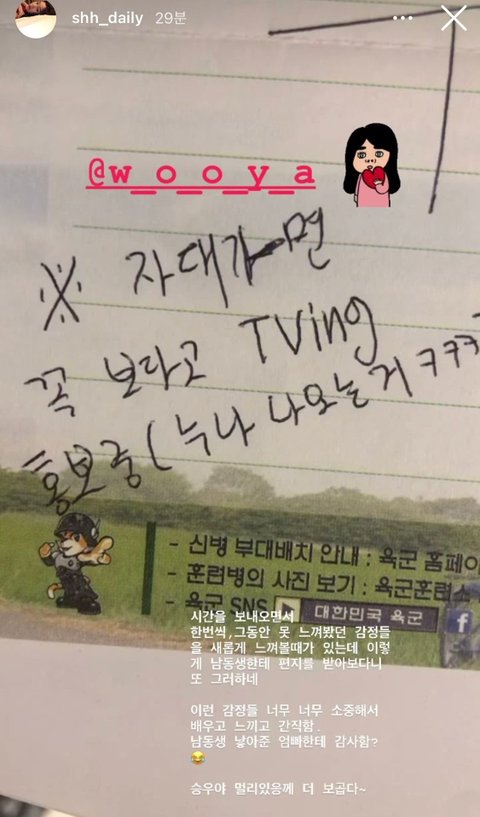 shh_daily 29분
@w_o_o_y_a
※ 자대가면
꼭 보라고 TVing
홍보중 (누나 나오는거 ㅋㅋㅋ
- 신병 부대배치 안내 : 육군 홈페이
- 훈련병의 사진 보기 : 육군훈련소
- 육군 SNS ▶ 대한민국 육군 f
시간을 보내오면서
한번씩,그동안 못 느껴봤던 감정들
을 새롭게 느껴볼때가 있는데 이렇
게 남동생한테 편지를 받아보다니
또 그러하네
이런 감정들 너무 너무 소중해서
배우고 느끼고 간직함.
남동생 낳아준 엄빠한테 감사함?
😂
승우야 멀리있응께 더 보곱다~